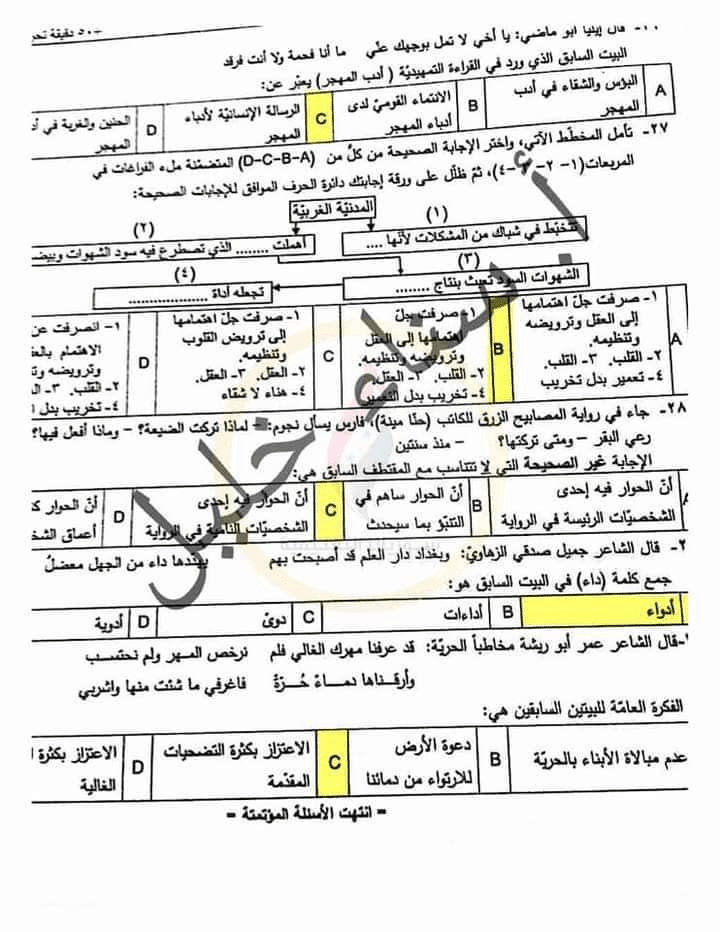 ٥٠ دقيقة تحر
٢٦- قال إيليا أبو ماضي: يا أخي لا تمل بوجهك عني ما أنا فحمة ولا أنت فرقد
البيت السابق الذي ورد في القراءة التمهيدية (أدب المهجر) يعبّر عن:
A البؤس والشقاء في أدب المهجر B الانتماء القوميّ لدى أدباء المهجر C الرسالة الإنسانيّة لأدباء المهجر D الحنين والغربة في أد المهجر
٢٧- تأمل المخطّط الآتي، واختر الإجابة الصحيحة من كلّ من (D-C-B-A) المتضمّنة ملء الفراغات في
المربعات (١-٢-٣-٤)، ثمّ ظلّل على ورقة إجابتك دائرة الحرف الموافق للإجابات الصحيحة:
المدنيّة الغربيّة
(١) (٢)
تتخبّط في شباك من المشكلات لأنّها .... أهملت ........ الذي تصطرع فيه سود الشهوات وبيض
(٣) (٤)
الشهوات السود تعبث بنتاج ........ تجعله أداة ..................
A ١- صرفت جلّ اهتمامها إلى العقل وترويضه وتنظيمه. ٢- القلب. ٣- القلب. ٤- تعمير بدل تخريب
B ١- صرفت جلّ اهتمامها إلى العقل وترويضه وتنظيمه. ٢- القلب. ٣- العقل. ٤- تخريب بدل التعمير
C ١- صرفت جلّ اهتمامها إلى ترويض القلوب وتنظيمه. ٢- العقل. ٣- العقل. ٤- هناء لا شقاء
D ١- انصرفت عن الاهتمام بالع وترويضه وت ٢- القلب. ٣- ال ٤- تخريب بدل
٢٨- جاء في رواية المصابيح الزرق للكاتب (حنّا مينة)، فارس يسأل نجوم: - لماذا تركت الضيعة؟ - وماذا أفعل فيها؟
رعي البقر - ومتى تركتها؟ - منذ سنتين
الإجابة غير الصحيحة التي لا تتناسب مع المقتطف السابق هي:
A أنّ الحوار فيه إحدى الشخصيّات الرئيسة في الرواية B أنّ الحوار ساهم في التنبّؤ بما سيحدث C أنّ الحوار فيه إحدى الشخصيّات النامية في الرواية D أنّ الحوار ك أعماق الشخ
٢- قال الشاعر جميل صدقي الزهاويّ: وبغداد دار العلم قد أصبحت بهم يهددها داء من الجهل معضلُ
جمع كلمة (داء) في البيت السابق هو:
أدواء B أداءات C دوىً D أدوية
-قال الشاعر عمر أبو ريشة مخاطباً الحريّة: قد عرفنا مهرك الغالي فلم نرخص المهر ولم نحتسب
وأرقناها دماءً حُرّةً فاغرفي ما شئت منها واشربي
الفكرة العامّة للبيتين السابقين هي:
عدم مبالاة الأبناء بالحريّة B دعوة الأرض للارتواء من دمائنا C الاعتزاز بكثرة التضحيات المقدّمة D الاعتزاز بكثرة ا الغالية
- انتهت الأسئلة المؤتمتة -
أ. سناء خليل